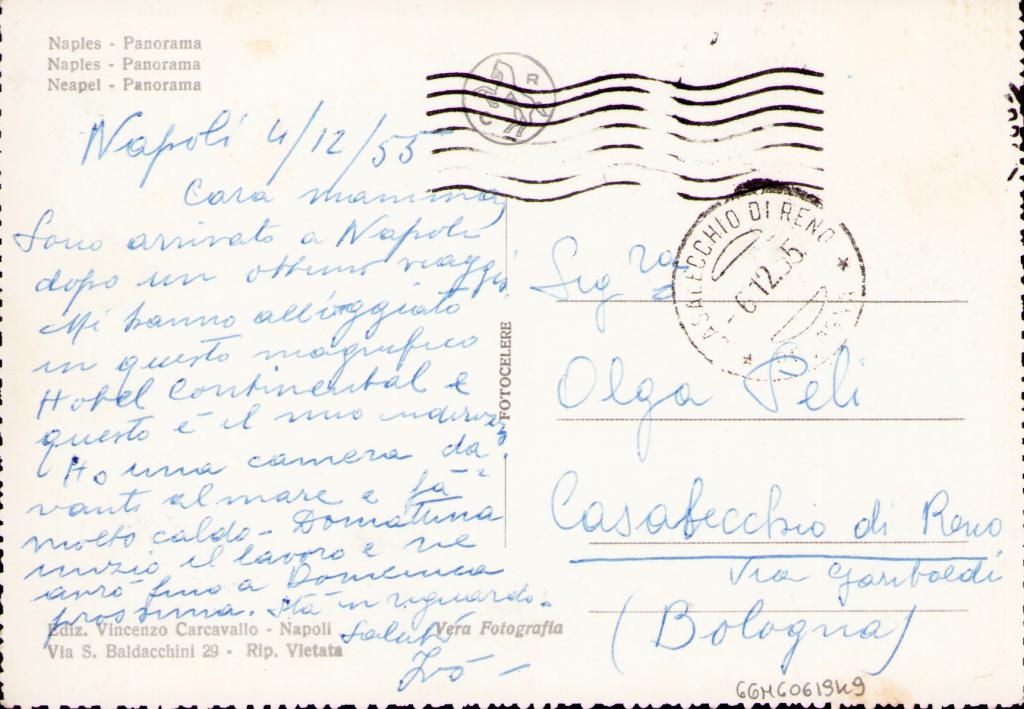 Naples - Panorama
Naples - Panorama
Neapel - Panorama
Napoli 4/12/55
Cara mamma,
Sono arrivato a Napoli
dopo un ottimo viaggio
Mi hanno alloggiato
in questo magnifico
Hotel Continental e
questo è il mio indirizzo
Ho una camera da=
vanti al mare e fa
molto caldo - Domattina
inizio il lavoro e ne
avrò fino a Domenica
prossima. Stà in riguardo -
Saluti
Ivo -
Ediz. Vincenzo Carcavallo - Napoli
Vera Fotografia
Via S. Baldacchini 29 - Rip. Vietata
FOTOCELERE
R
C
CASALECCHIO DI RENO
- 6.12.55
Sig.ra
Olga Peli
Casalecchio di Reno
Via Garibaldi
(Bologna)